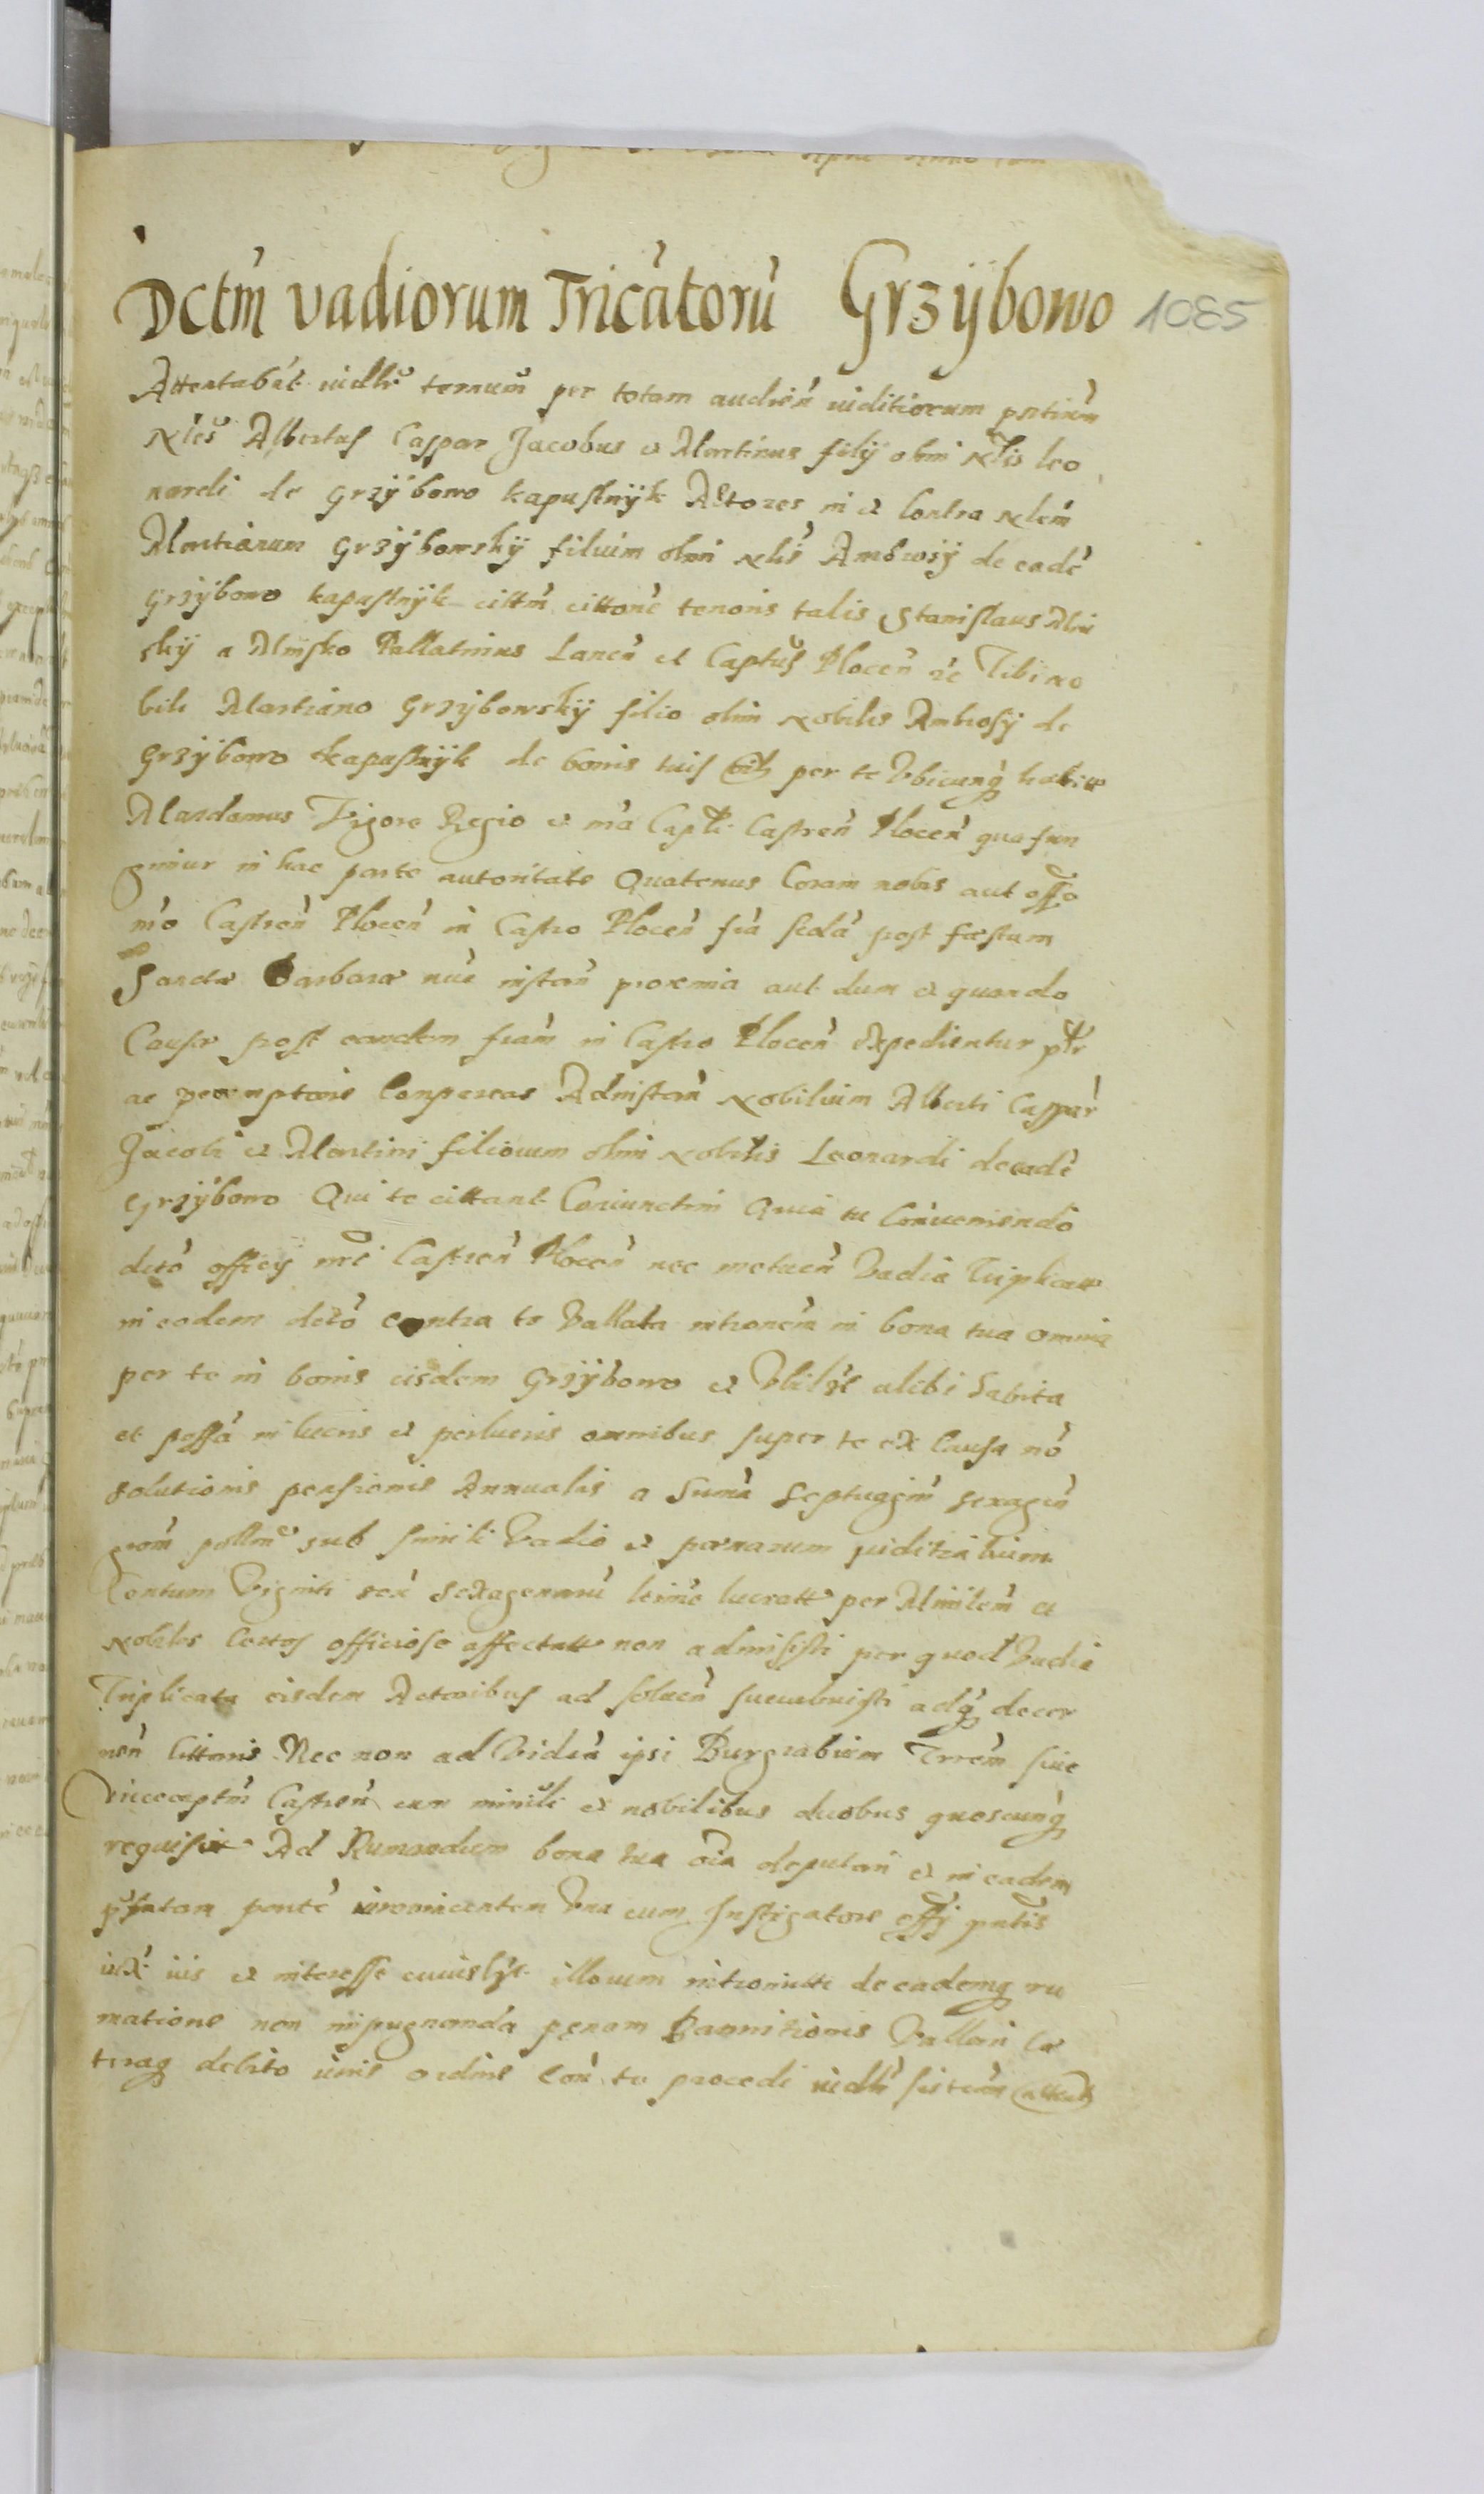 Dctm̃ vadiorum Tricatorũ Grzÿbowo 1085
Attentabãt iudlr ternum per totam audien̄ iuditiorum pñtium
Nles Albertus Caspar Jacobus et Martinus filÿ olim Nlis Leo
nardi de Grzÿbowo kapustnÿk Actores in et Contra Nlem
Martianum Grzÿbowskÿ filium olim Nlis Ambrosÿ de eadẽ
Grzÿbowo kapustnÿk cittm̃ cittone tenoris talis Stanislaus Min
skÿ a Minsko Pallatinus Lancñ et Captus Plocen̄ ꝛc Tibi no
bili Martiano Grzÿbowskÿ filio olim Nobilis Ambrosÿ de
Grzÿbowo kapustnÿk de bonis tuis per te Vbicunq̨ habit
Mandamus Vigore Regio et mã Captli Castren̄ Plocen̄ qua fun
gimur in hac parte autoritate Quatenus Coram nobis aut offo
nro Castren̄ Plocen̄ in Castro Plocen̄ fia scdã post festum
Sanctæ Barbaræ nũc instan̄ proxima aut dum et quando
Causæ post eandem friam in Castro Plocen̄ expedientur ptr
ac peremptorie Compareas Adinstan̄ Nobilium Alberti Caspar
Jacobi et Martini filiorum olim Nobilis Leonardi de eadẽ
Grzÿbowo Qui te cittant Coniunctim Quia tu Conueniendo
decto officÿ nri Castren̄ Plocen̄ nec metuen̄ Vadia Triplicatt
in eodem decto contra te Vallata introm̃ in bona tua omnia
per te in bonis eisdem Grzÿbowo et Vbilt alibi habita
et possã in lucris et perlucris omnibus super te ex Causa nõ
solutionis pensionis Annualis a Summa Septuagin̄ sexagen̄
grom̃ pollm̃ sub simili Vadio et pœnarum iuditialium
Centum Viginti sex sexagenarũ lucratt per Minilem et
Nobiles Certos officiose affectatt non admisisti per quod Vadia
Triplicata eisdem Actoribus ad soluen̄ succubuisti adq̨ decer
nen̄ Cittaris Nec non ad Viden̄ ipsi Burgrabium Trrem̃ siue
Viceceptm̃ Castren̄ cum minili et nobilibus duobus quoscunq̨
requisi Ad Rumandum bona tua oia deputari et in eadem
pfatam partẽ introm̃ittentem Vna cum Instigatore offÿ pntis
iux ius et interesse cuiuslt illorum intromitti de eademq̨ ru
matione non impugnanda penam Bannitionis Vallari Cæ
teraq̨ debito iuris ordine Con te procedi iudlr sis term̃ attent